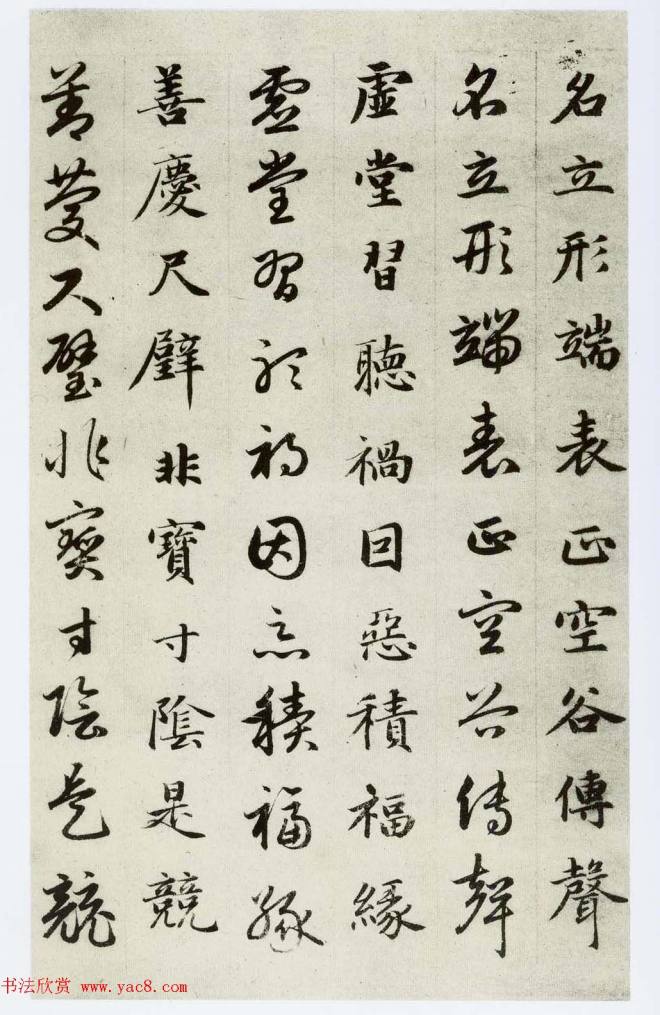 名立形端表正空谷傳聲
名立形端表正空谷傳聲
虛堂習聽禍因惡積福緣
虛堂習聽禍因惡積福緣
善慶尺璧非寶寸陰是競
善慶尺璧非寶寸陰是競
书法欣赏 www.yac8.com